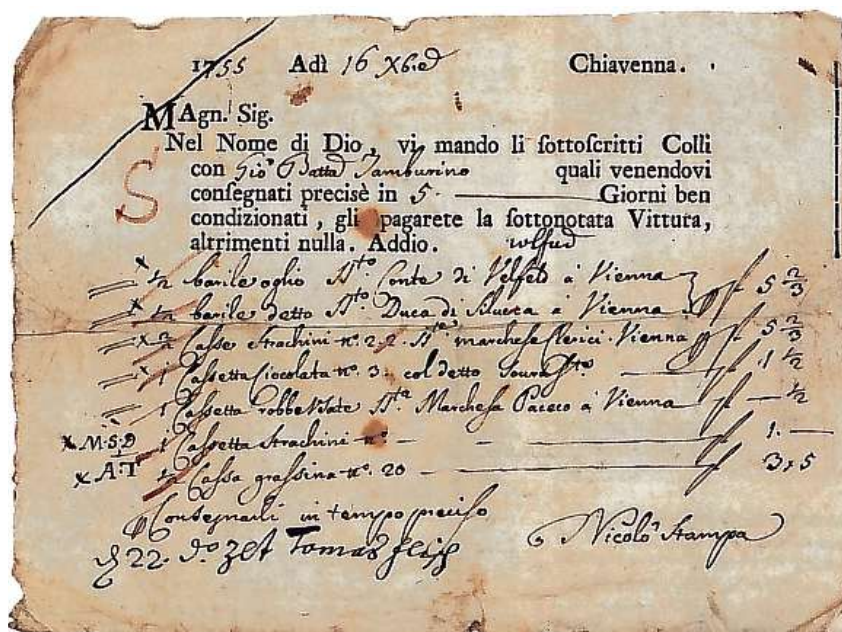 1755 Adì 16 Xb.e Chiavenna.
MAgn. Sig.
Nel Nome di Dio, vi mando li ſottoſcritti Colli
con Gio. Batta Tamburino quali venendovi
conſegnati precisè in 5. Giorni ben
condizionati, gli pagarete la ſottonotata Vittura,
altrimenti nulla. Addio.
S
x ½ barile oglio Conte di Velfeld à Vienna
x ½ barile detto Duca di à Vienna 5 ⅔
x 2 Casse Strachini n.º 2 2 marchese Clerici Vienna 5 ⅔
x 1 Cassetta Ciocolata n.º 3 col detto Soura 1 ½
1 Cassetta robbe Marchesa Paceco à Vienna — ½
x M.S.D 1 Cassetta Strachini n.º — 1. —
x A.T Cassa grassina n.º 20 3
Consegnarli in tempo preciso
22. Tomas
Nicolò Stampa